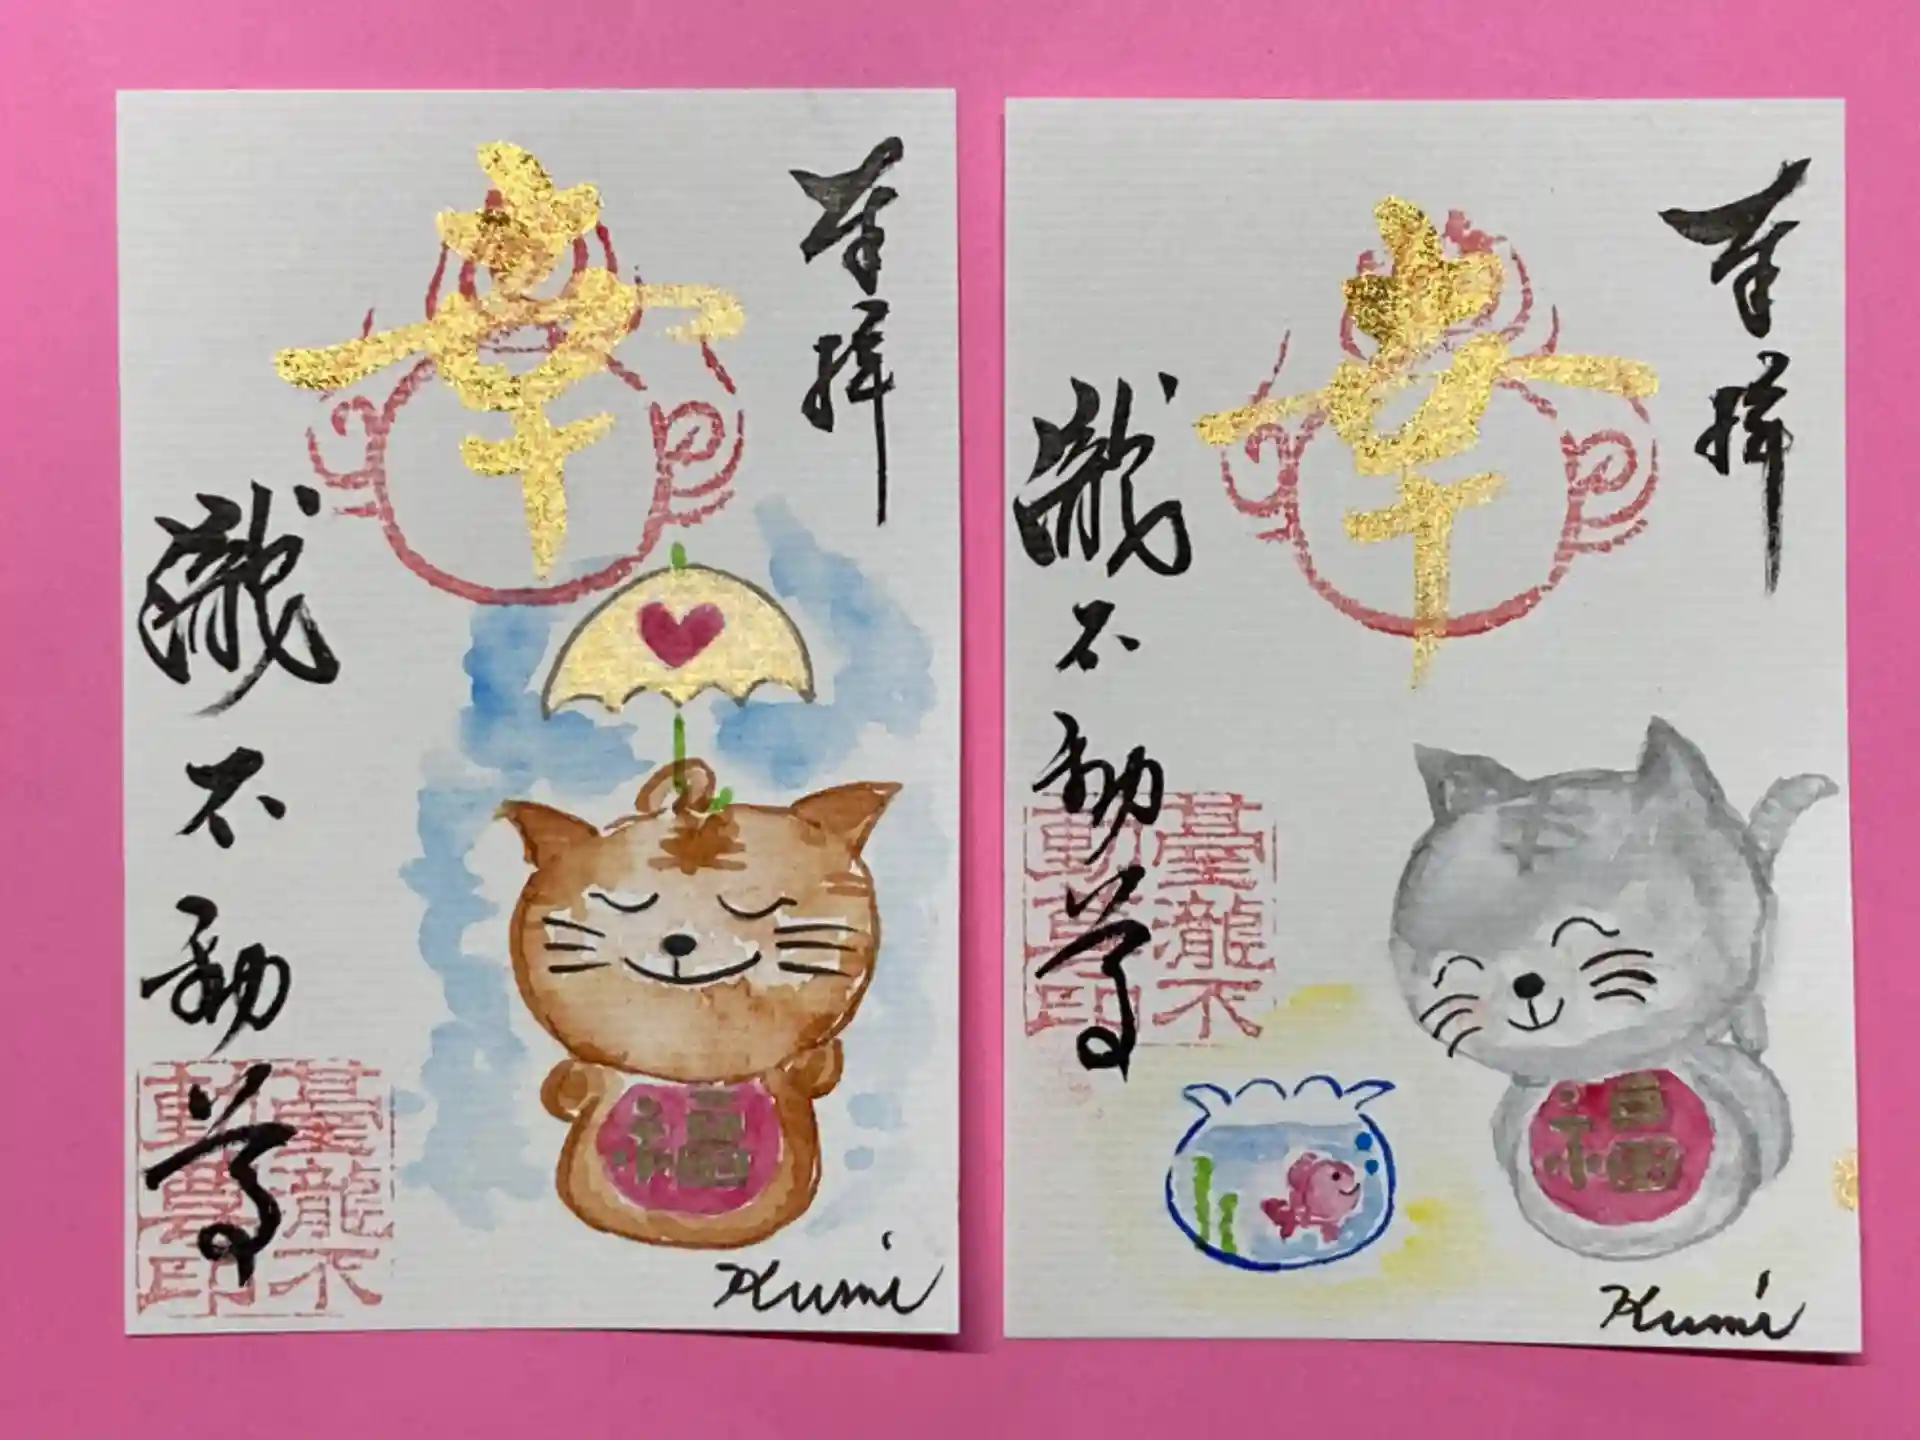 奉拝
幸
瀧不動尊
福
臺瀧不
動尊印
Kumi
奉拝
幸
瀧不動尊
福
臺瀧不
動尊印
Kumi